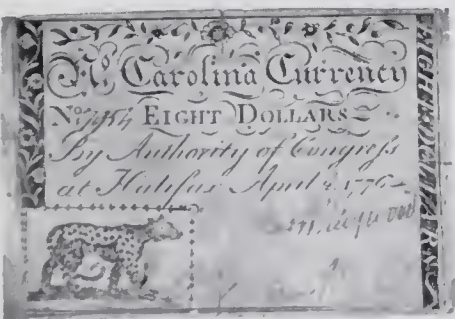 No Carolina Currency
No EIGHT DOLLARS
By Authority of Congress
at Halifax April 2, 1776
EIGHT DOLLARS